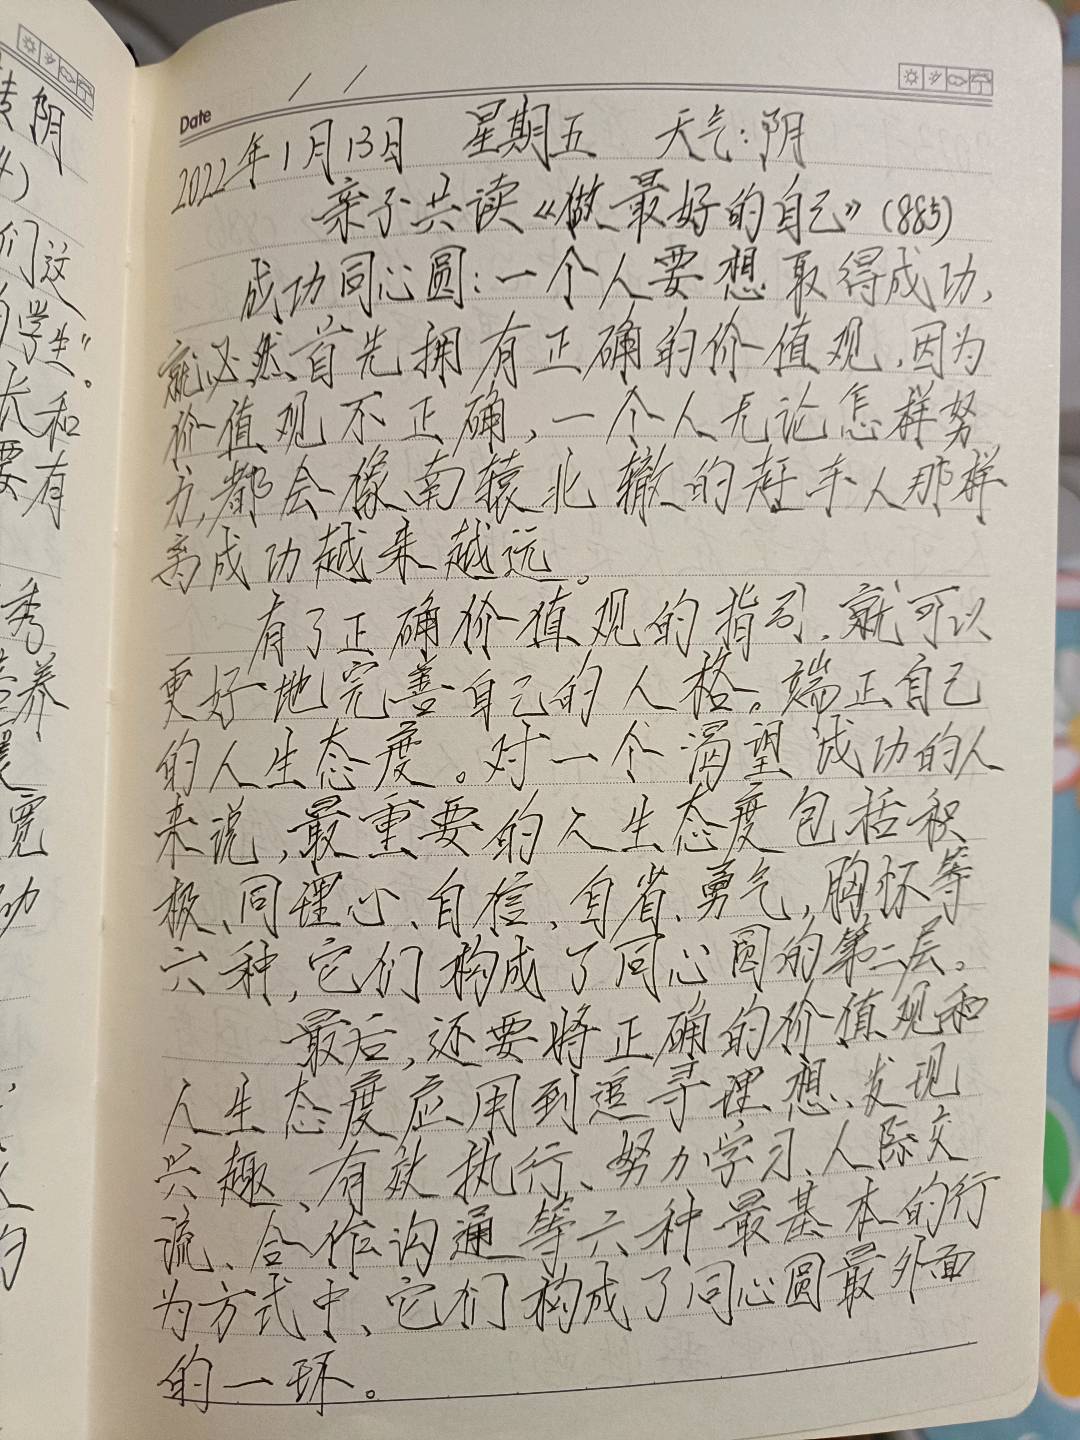 Date
2022年1月13日 星期五 天气:阴
亲子共读《做最好的自己》(885)
成功同心圆:一个人要想取得成功,
就必然首先拥有正确的价值观,因为
价值观不正确,一个人无论怎样努
力,都会像南辕北辙的赶车人那样
离成功越来越远。
有了正确价值观的指引,就可以
更好地完善自己的人格。端正自己
的人生态度。对一个渴望成功的人
来说,最重要的人生态度包括积
极、同理心、自信、自省、勇气,胸怀等
六种,它们构成了同心圆的第二层。
最后,还要将正确的价值观和
人生态度应用到追寻理想、发现
兴趣、有效执行、努力学习、人际交
流、合作沟通等六种最基本的行
为方式中、它们构成了同心圆最外面
的一环。
阴
们这
学生”。
和
要有
秀
养
宽